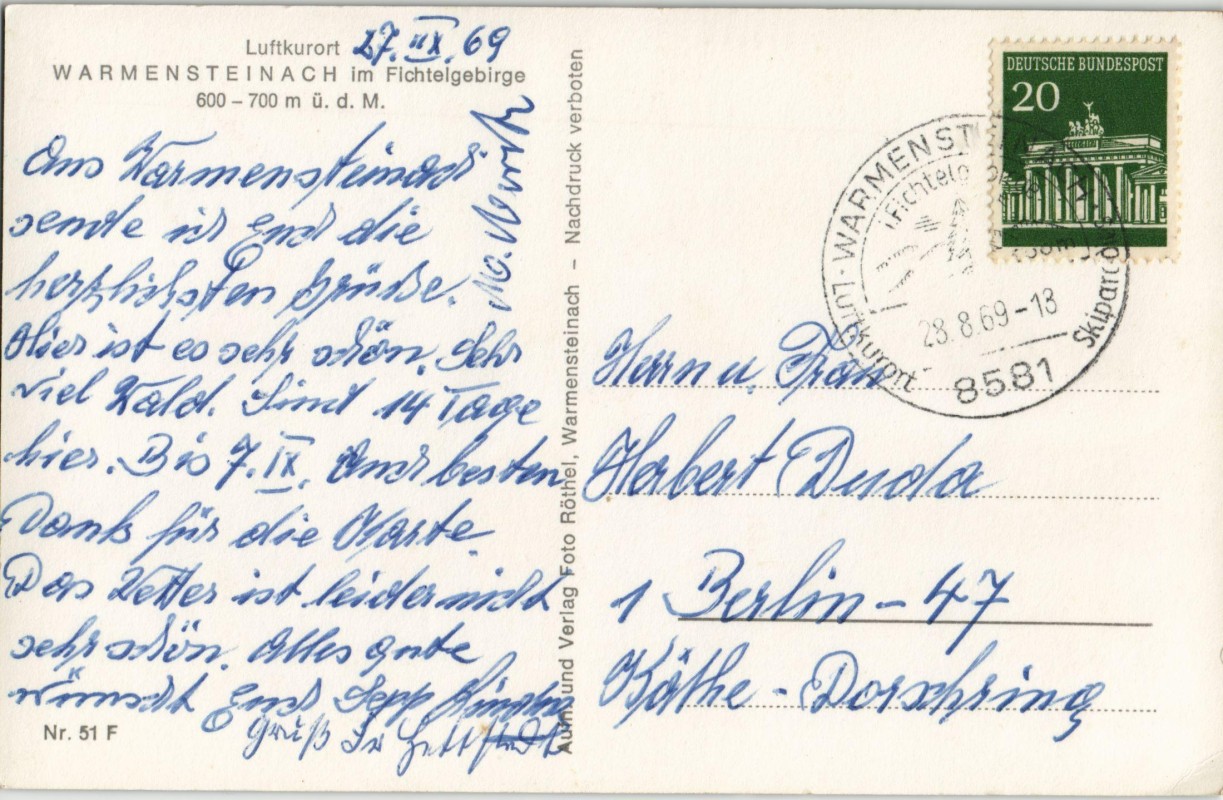 Luftkurort 27. IX. 69
WARMENSTEINACH im Fichtelgebirge
600 – 700 m ü. d. M.
Aus Warmensteinach
sende ich Euch die
herzlichsten Grüße.
Hier ist es sehr schön. Sehr
viel Wald. Sind 14 Tage
hier. Bis 7. IX. Auch besten
Dank für die Karte.
Das Wetter ist leider nicht
sehr schön. Alles gute
wünscht Euch Sepp
Gruß
Nr. 51 F
Aufn. und Verlag Foto Röthel, Warmensteinach – Nachdruck verboten
DEUTSCHE BUNDESPOST
20
Luftkurort · WARMENST
Skiparadies
28.8.69-18
8581
Herrn u. Frau
Herbert Duda
1 Berlin - 47
Käthe - Dorschring